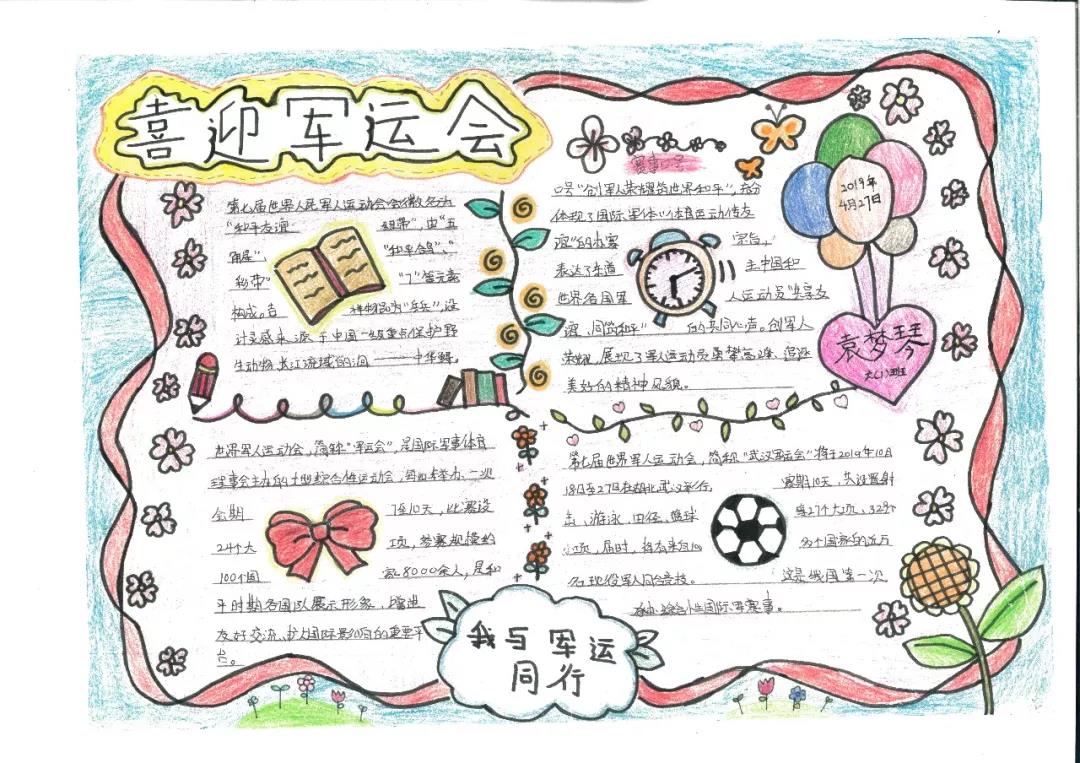 喜迎军运会
第七届世界人民军人运动会会徽名为
"和平友谊 纽带",由"五
角星"、 "和平鸽"、"
彩带" "7"等元素
构成。吉 祥物名为"兵兵",设
计灵感来源于中国一级重点保护野
生动物长江流域的 中华鲟。
赛事口号
口号"创军人荣耀筑世界和平",充分
体现了国际军体"体育运动传友
谊"的办赛 宗旨,
表达了东道 主中国和
世界各国军 人运动员"共享友
谊,同筑和平" 的共同心声。创军人
荣耀,展现了军人运动员勇攀高峰、追逐
美好的精神风貌。
2019年
4月27日
袁梦琴
六(1)班
世界军人运动会,简称"军运会",是国际军事体育
理事会主办的 综合性运动会,每四年举办一次
会期 7至10天,比赛设
24个大 项,参赛规模约
100个国 家8000余人,是和
平时期各国军队展示形象、增进
友好交流、扩大国际影响的重要平
台。
第七届世界军人运动会,简称"武汉军运会"将于2019年10月
18日至27日在湖北武汉举行, 赛期10天,共设置射
击、游泳、田径、篮球 等27个大项、329个
小项,届时,将有来自100 多个国家的近万
名现役军人同台竞技。 这是我国第一次
承办综合性国际军赛事。
我与军运
同行